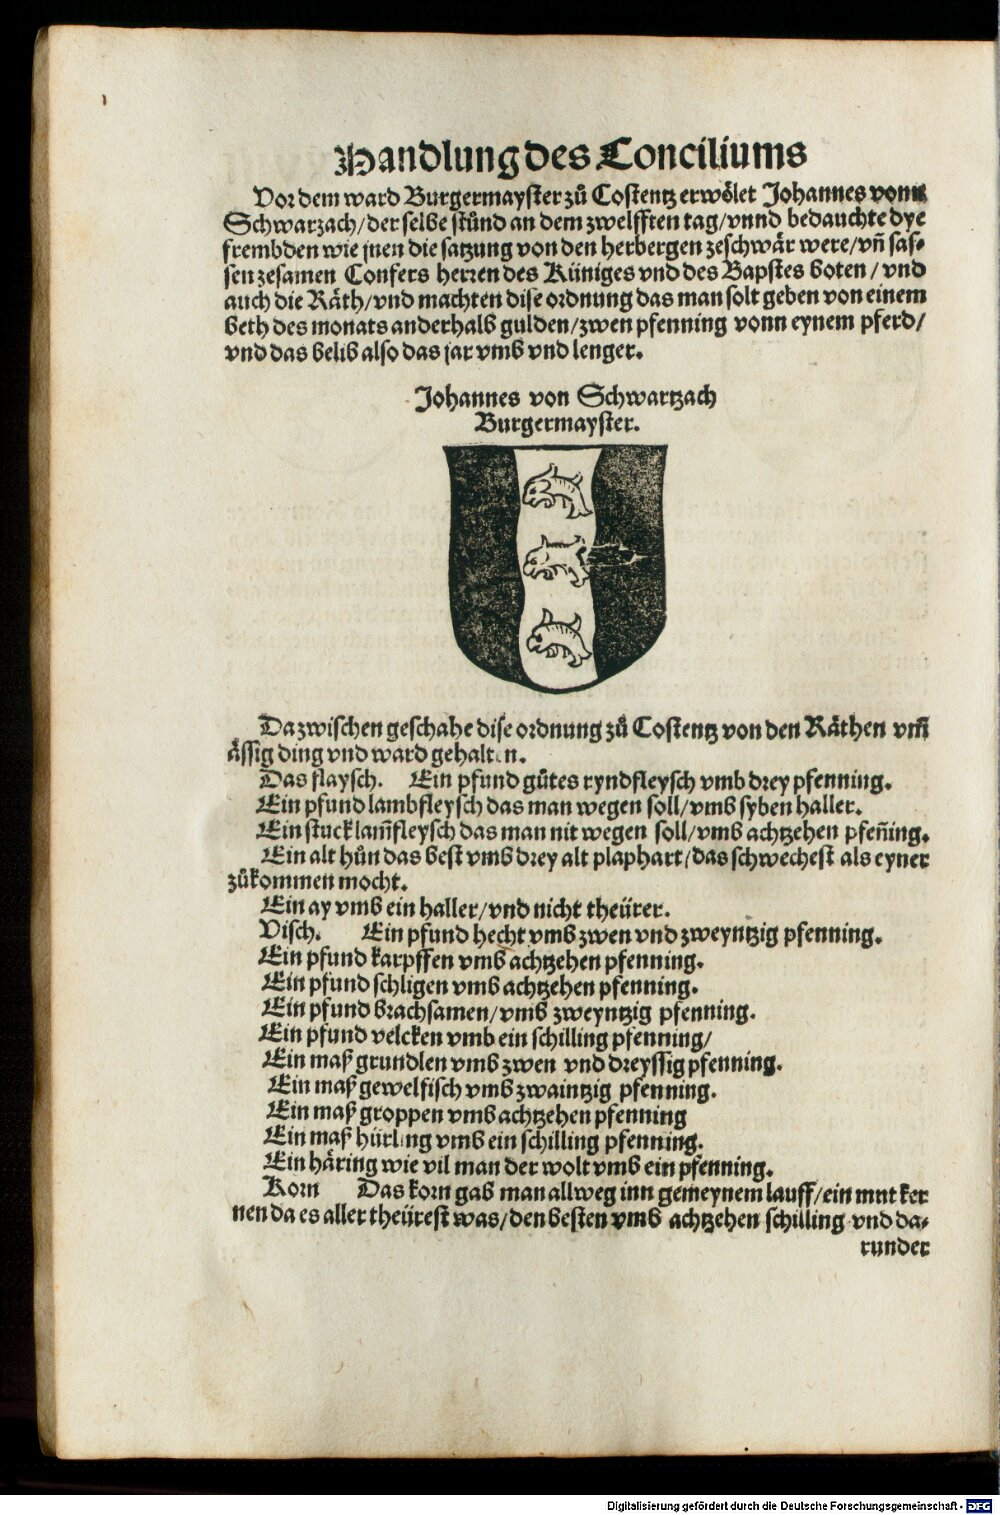 Handlung des Conciliums
Vor dem ward Burgermayster zů Costentz erwölet Johannes vonn
Schwarzach/der selbe stůnd an dem zwelfften tag/vnnd bedauchte dye
frembden wie jnen die satzung von den herbergen zeschwär were/vñ sas-
sen zesamen Confers herren des Küniges vnd des Bapstes boten/vnd
auch die Räth/vnd machten dise ordnung das man solt geben von einem
beth des monats anderhalb gulden/zwen pfenning vonn eynem pferd/
vnd das belib also das jar vmb vnd lenger.
Johannes von Schwartzach
Burgermayster.
Dazwischen geschahe dise ordnung zů Costentz von den Räthen vm̃
ässig ding vnd ward gehalten.
Das flaysch. Ein pfund gůtes ryndfleysch vmb drey pfenning.
Ein pfund lambfleysch das man wegen soll/vmb syben haller.
Ein stuck lam̃fleysch das man nit wegen soll/vmb achtzehen pfeñing.
Ein alt hůn das best vmb drey alt plaphart/das schwechest als eyner
zůkommen mocht.
Ein ay vmb ein haller/vnd nicht theürer.
Visch. Ein pfund hecht vmb zwen vnd zweyntzig pfenning.
Ein pfund karpffen vmb achtzehen pfenning.
Ein pfund schligen vmb achtzehen pfenning.
Ein pfund brachsamen/vmb zweyntzig pfenning.
Ein pfund velcken vmb ein schilling pfenning/
Ein maß grundlen vmb zwen vnd dreyssig pfenning.
Ein maß gewelfisch vmb zwaintzig pfenning.
Ein maß groppen vmb achtzehen pfenning
Ein maß hürling vmb ein schilling pfenning.
Ein häring wie vil man der wolt vmb ein pfenning.
Korn Das korn gab man allweg inn gemeynem lauff/ein mut ker
nen da es aller theürest was/den besten vmb achtzehen schilling vnd da-
runder
Digitalisierung gefördert durch die Deutsche Forschungsgemeinschaft - DFG